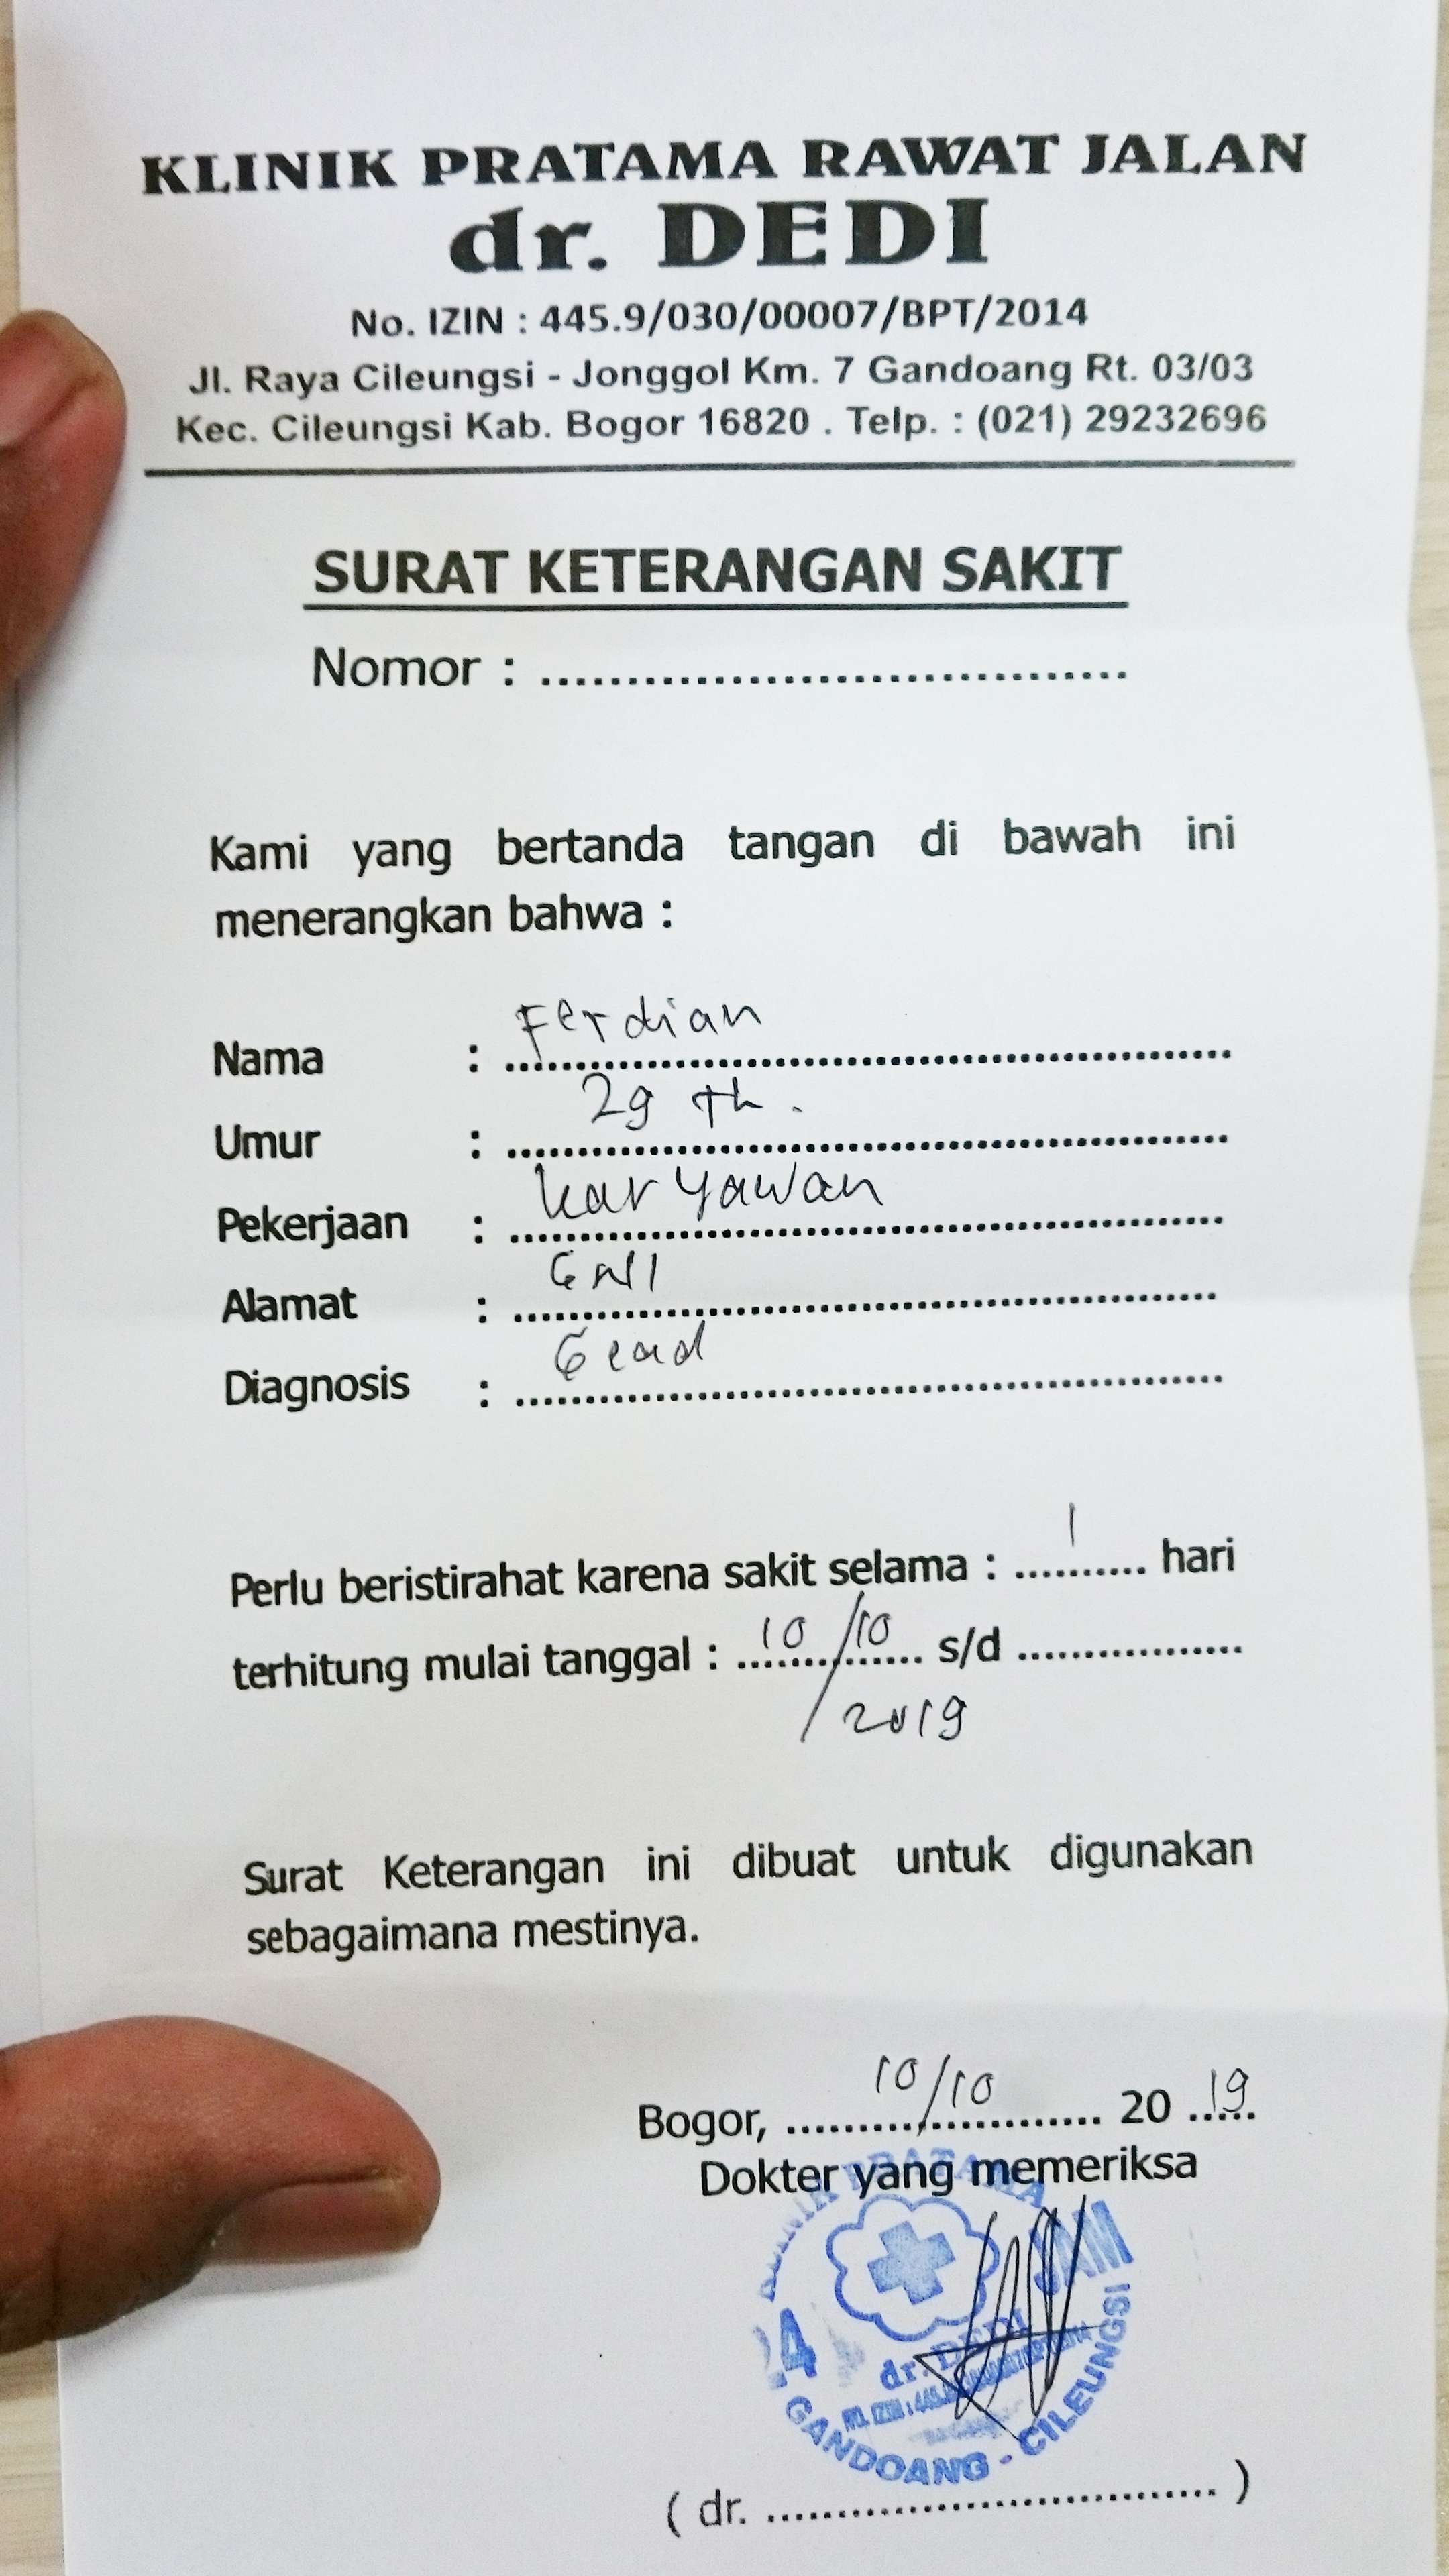 KLINIK PRATAMA RAWAT JALAN
dr. DEDI
No. IZIN : 445.9/030/00007/BPT/2014
Jl. Raya Cileungsi - Jonggol Km. 7 Gandoang Rt. 03/03
Kec. Cileungsi Kab. Bogor 16820 . Telp. : (021) 29232696
SURAT KETERANGAN SAKIT
Nomor : ..................................
Kami yang bertanda tangan di bawah ini
menerangkan bahwa :
Nama : Ferdian
Umur : 29 th.
Pekerjaan : karyawan
Alamat : GNI
Diagnosis :
Perlu beristirahat karena sakit selama : 1 hari
terhitung mulai tanggal : 10/10 s/d ..................
/2019
Surat Keterangan ini dibuat untuk digunakan
sebagaimana mestinya.
Bogor, 10/10 20 19
Dokter yang memeriksa
KLINIK PRATAMA
24 JAM
dr. DEDI
NO. IZIN :
GANDOANG - CILEUNGSI
( dr. .................................. )